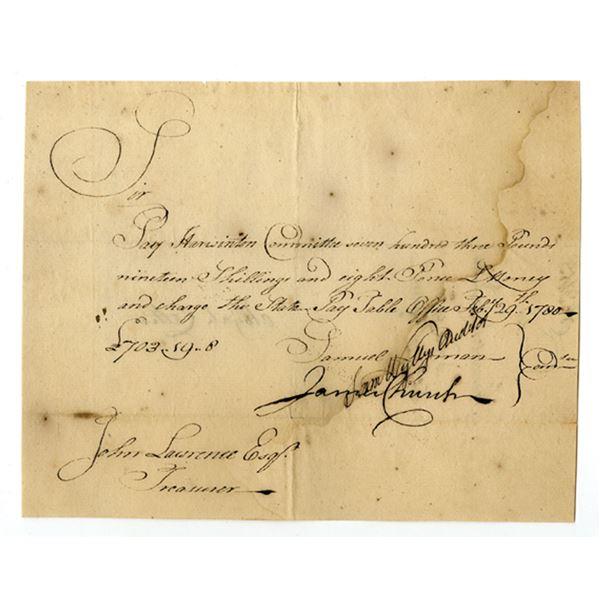 Sir
Pay Harwinton Committee seven hundred three Pounds
nineteen Shillings and eight Pence L Money
and charge the State Pay Table Office Feby 29th 1780
£703-19-8
Samuel
James Church
John Lawrence Esqr.
Treasurer